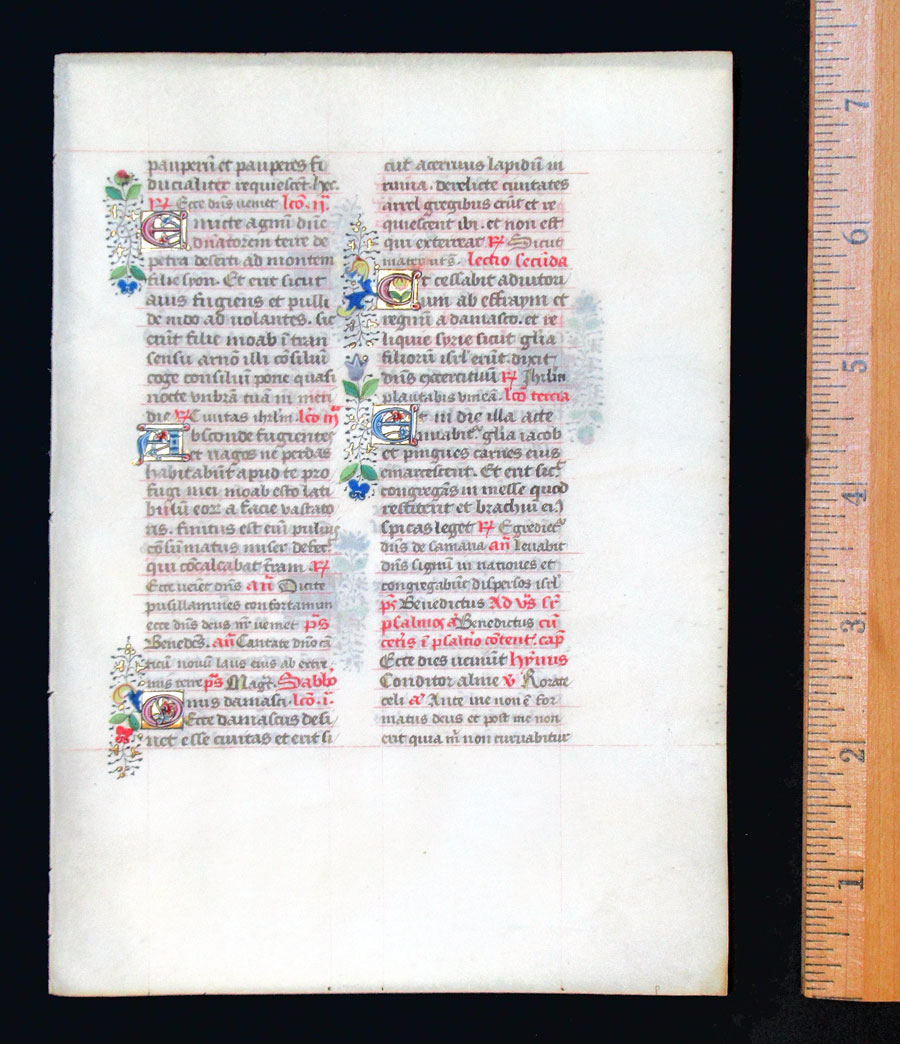 pauperū et pauperes fi
ducialiter requiescēt. hec.
℟ Ecce dn̄s ueniet lc̄o. ij.
Emitte agnū dn̄e
dn̄atorem terre de
petra deserti ad montem
filie syon. Et erit sicut
auis fugiens et pulli
de nido ad uolantes. sic
erūt filie moab ī tran
sensu arnō illi cōsiliū
coge consiliū pone quasi
nocte vmbrā tuā in meri
die ℟ Ciuitas ihrl̄m. lc̄o iij
Absconde fugientes
et uagos ne perdas
habitabūt apud te pro
fugi mei moab esto lati
bulū eor a facie vastato
ris. finitus est eīn puluis
cōsūmatus miser defec̄
qui cōcalcabat t̄ram a ℟
Ecce ueīet dn̄s an̄ Dicite
pusillamines confortamini
ecce dn̄s deus nr̄ ueniet ps̄
Benedc̄s. an̄ Cantate dn̄o cā
ticū nouū laus eius ab extre
mis terre ps̄ Magt̄. Sabb̄o
Onus damasci. lc̄o. i.
Ecce damascus desi
net esse ciuitas et erit si
cut aceruus lapidū in
ruina. derelicte ciuitates
aroel gregibus erūt et re
quiescent ibi. et non est
qui exterreat ℟ Sicut
mater lectio secūda
Et cessabit adiutori
um ab effraym et
regnū a damasco. et re
liquie syrie sicut gl̄ia
filiorū isrl̄ erūt. dixit
dn̄s exercituū ℟ Jhrl̄m
plantabis vineā. lc̄o tercia
Et in die illa atte
nuabit gl̄ia iacob
et pingues carnes eius
emarcescent. Et erit sic̄
congregās in messe quod
restiterit et brachiū eiꝰ
spicas leget ℟ Egredieꝉ
dn̄s de samaria an̄ Leuabit
dn̄s signū in nationes et
congregabit dispersos isrl̄
ps̄ Benedictus Ad vs̄
psalmos a Benedictus cū
cet̄is ī psaltio cōtent. cap̄
Ecce dies ueniūt hȳnus
Conditor alme v̄ Rorate
celi a Ante me non ē for
matus deus et post me non
erit quia m̄ non curuabitur
7
6
5
4
3
2
1